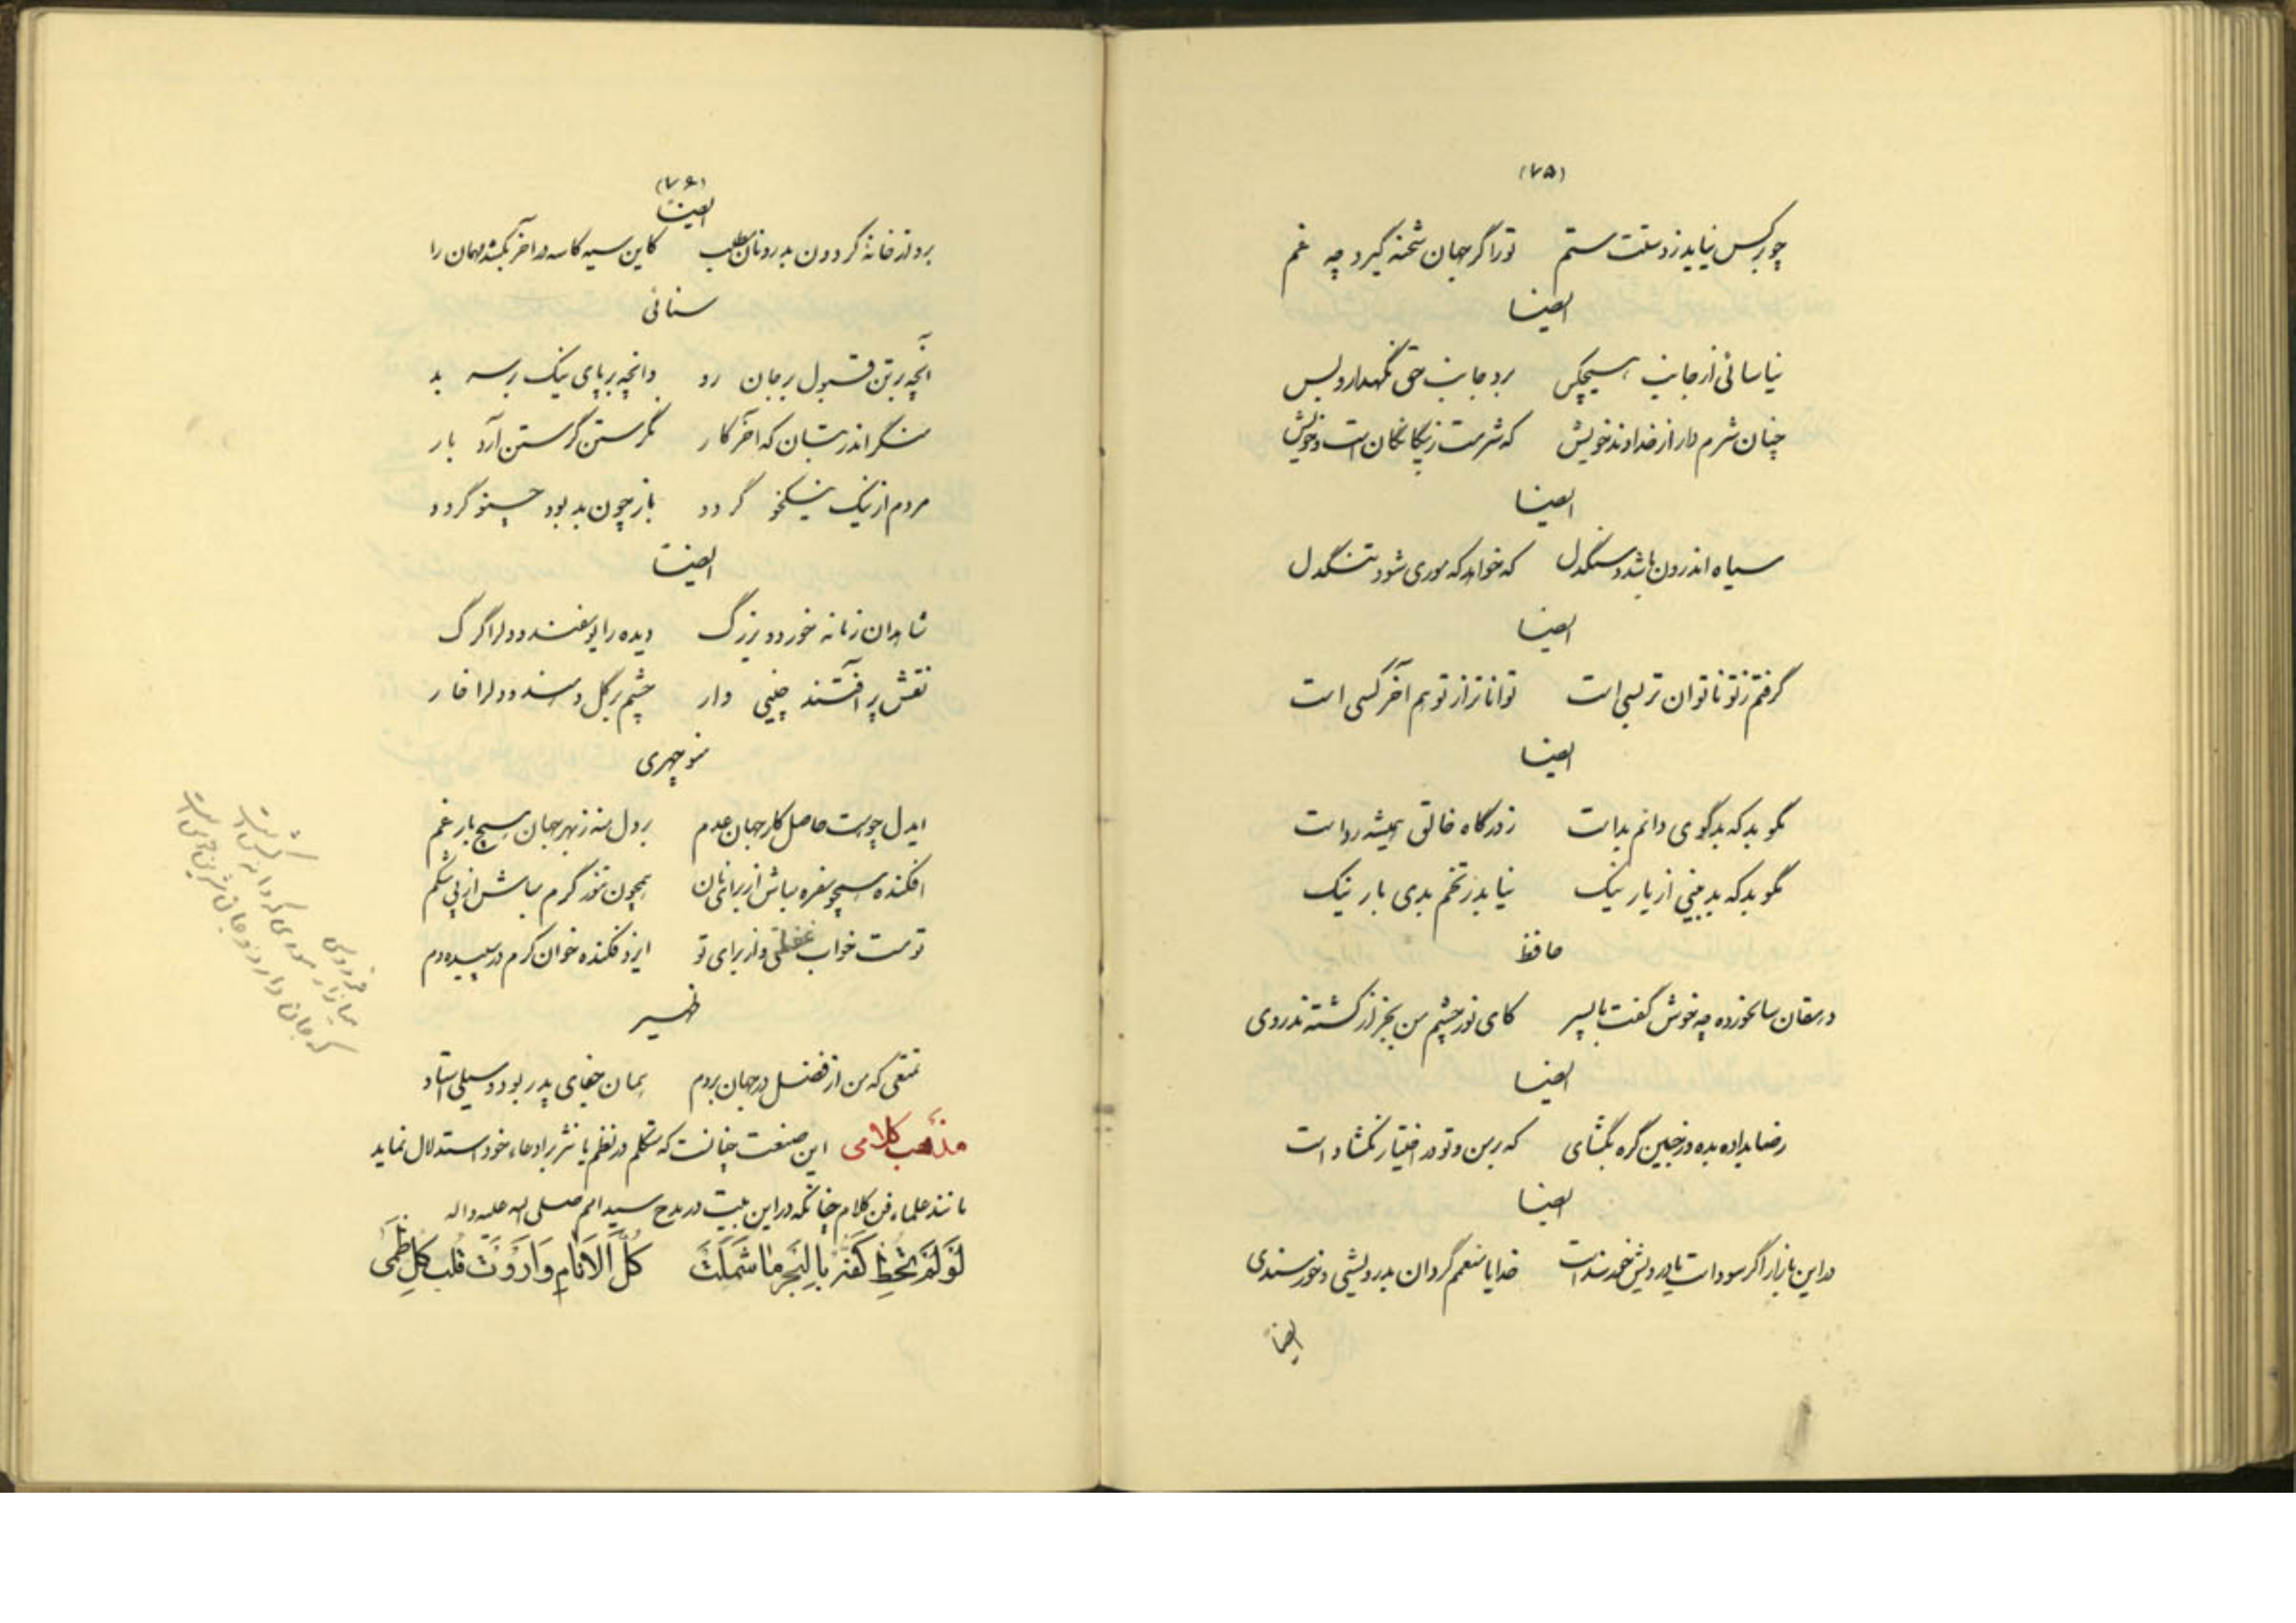 (۷۵)
چو بر کس نیاید ز دستت ستم تو را گر جهان شحنه گیرد چه غم
ایضا
نیاسائی از جانب هیچکس برو جانب حق نگهدار و بس
چنان شرم دار از خداوند خویش که شرمت ز بیگانگان است و خویش
ایضا
سیاه اندرون باشد و سنگدل که خواهد که موری شود تنگدل
ایضا
گرفتم ز تو ناتوان تر بسی است تواناتر از تو هم آخر کسی است
ایضا
مگو بد که بدگوی دانم بد است ز درگاه خالق همیشه رد است
مگو بد که بد بینی از یار نیک نیاید ز تخم بدی بار نیک
حافظ
دهقان سالخورده چه خوش گفت با پسر کای نور چشم من بجز از کشته ندروی
ایضا
رضا بداده بده وز جبین گره بگشای که بر من و تو در اختیار نگشاد است
ایضا
در این بازار اگر سود است با درویش خرسند است خدایا منعمم گردان بدرویشی و خورسندی
ایضاً
(۷۶)
ایضاً
برو از خانهٔ گردون بدر و نان مطلب کاین سیه کاسه در آخر بکشد مهمان را
سنائی
آنچه بر تن قبول بر جان رد وانچه بر پای نیک بر سر بد
منگر اندر بتان که آخر کار نگرستن گرستن آرد بار
مردم از نیک نیکخو گردد باز چون بد بود چنو گردد
ایضا
شاهدان زمانه خورد و بزرگ دیده را یوسفند و دلرا گرگ
نقش پر آفتند چینی وار چشم بر گل دهند و دلرا خار
منوچهری
ایدل چو هست حاصل کار جهان عدم بر دل منه ز بهر جهان هیچ بار غم
افکنده همچو سفره مباش از برای نان همچون تنور گرم مباش از پی شکم
تو مست خواب غفلتی و از برای تو ایزد فکنده خوان کرم در سپیده دم
ظهیر
تمتعی که من از فضل در جهان بردم همان جفای پدر بود و سیلی استاد
مذهب کلامی این صنعت چنانست که متکلم در نظم یا نثر بر ادعاء خود استدلال نماید
مانند علماء فن کلام چنانکه در این بیت در مدح سید امم صلی الله علیه و آله
لَوْ لَمْ تُحِطْ كَفُّهُ بِالْبَحْرِ مٰا شَمَلَتْ كُلَّ الْاَنٰامِ وَاَرْوَتْ قَلْبَ كُلِّ ظَمٖی
فردوسی
میازار موری که دانه کش است
که جان دارد و جان شیرین خوش است